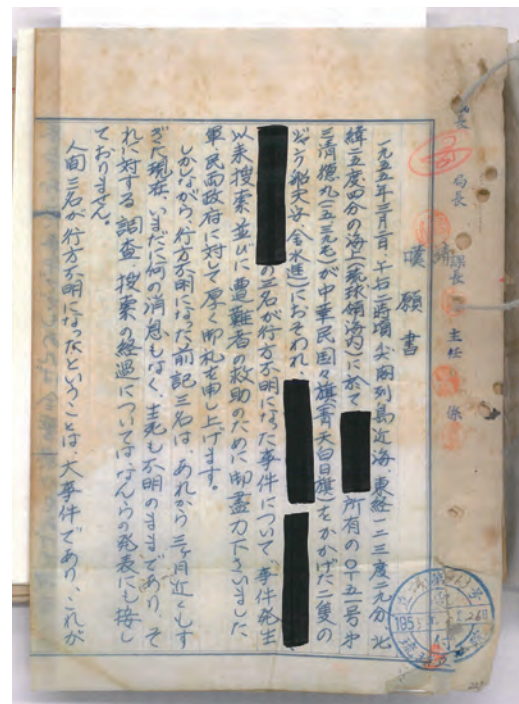 局長
課長
主任
係
嘆願書
一九五五年三月二日、午后二時頃、尖閣列島近海、東経一二三度二九分、北
緯二五度四分の海上(琉球領海内)に於て 所有の
三清徳丸 が中華民国々旗(青天白日旗)をかかげた二隻の
ジャンク船 におそわれ、
の三名が行方不明になった事件について、事件発生
以来捜索並びに遭難者の救助のために御盡力下さいました
軍民両政府に対して厚く御礼を申し上げます。
しかしながら、行方不明になった前記三名は、あれから三ヶ月近くもす
ぎた現在、いまだに何の消息もなく、生死も不明のままであり、そ
れに対する調査、捜索の経過についてはなんらの発表にも接し
ておりません。
人間三名が行方不明になったということは、大事件であり、これが